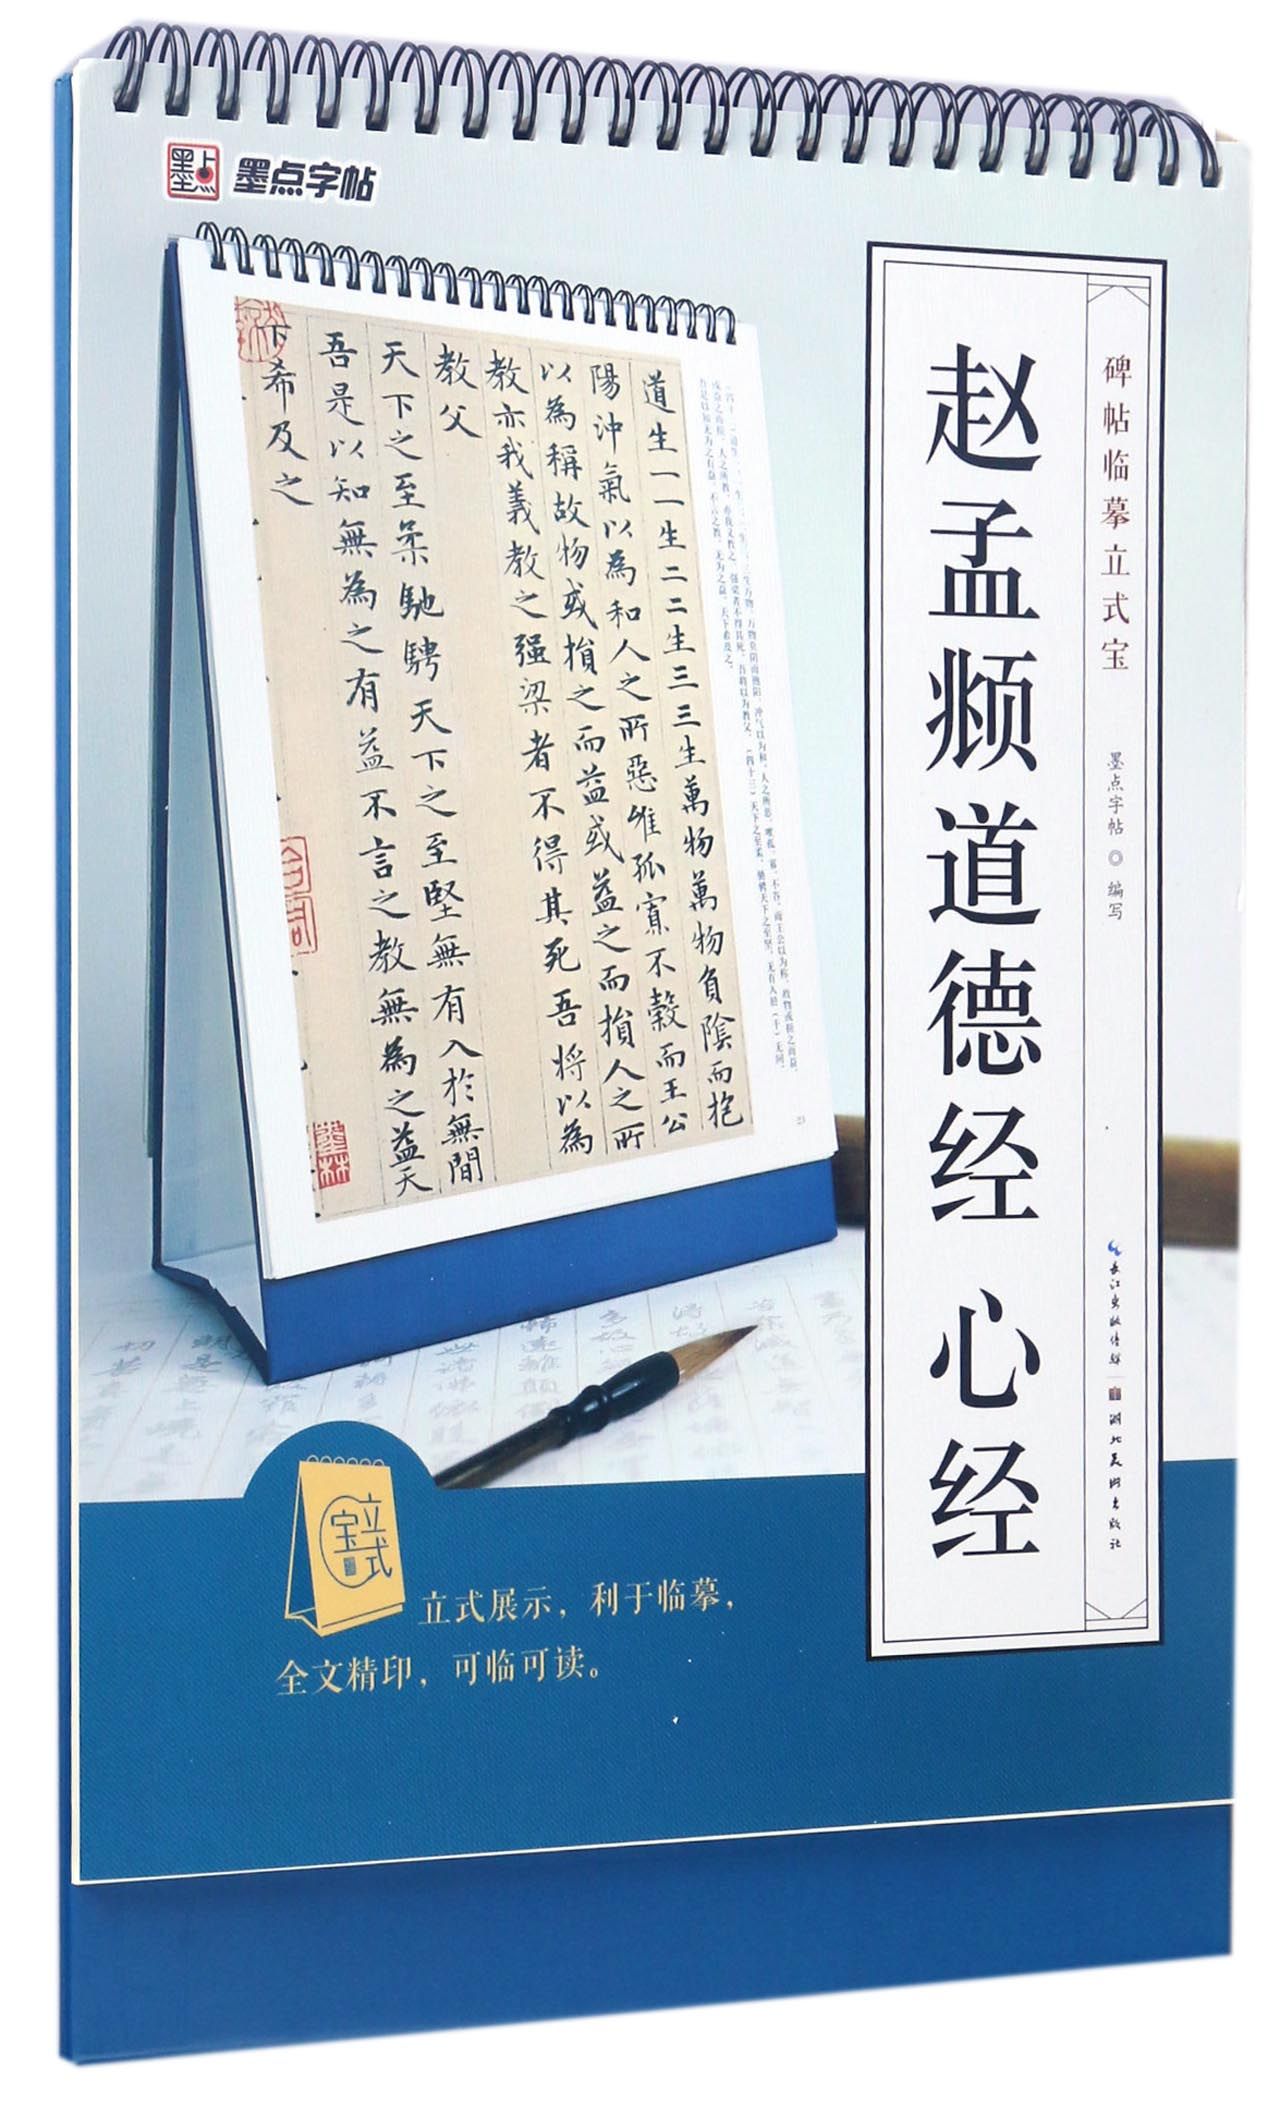 墨点字帖
碑帖临摹立式宝
墨点字帖◎编写
长江出版传媒
湖北美术出版社
赵孟頫道德经 心经
道生一一生二二生三三生萬物萬物負陰而抱
陽沖氣以為和人之所惡惟孤寡不穀而王公
以為稱故物或損之而益或益之而損人之所
教亦我義教之强梁者不得其死吾将以為
教父
天下之至柔馳騁天下之至堅無有入於無間
吾是以知無為之有益不言之教無為之益天
下希及之
23
立式宝
立式展示，利于临摹，
全文精印，可临可读。